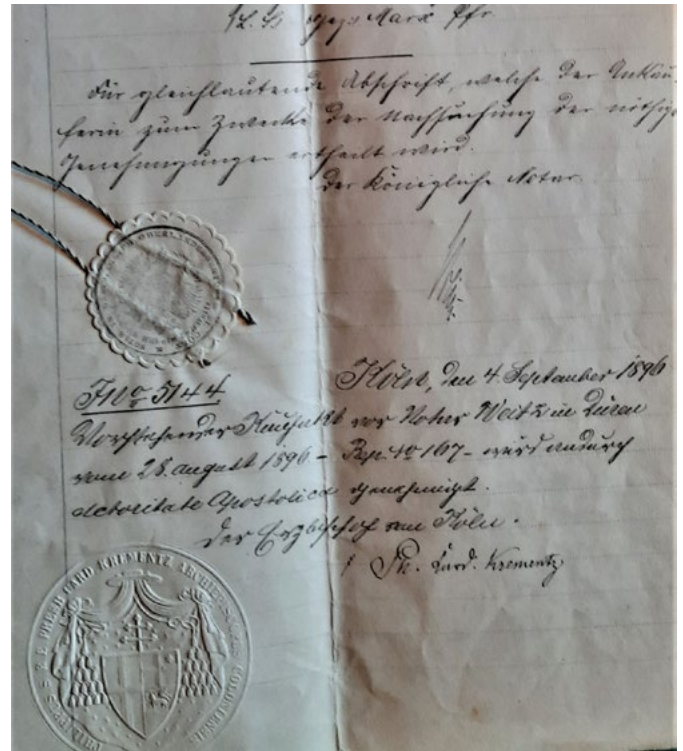 gez. Marx Pfr.
Für gleichlautende Abschrift, welche der Ankäu-
ferin zum Zwecke der Nachsuchung der nöthigen
Genehmigungen ertheilt wird.
Der Königliche Notar
JNo 5144
Köln, den 4. September 1896
Vorstehender Kaufakt vor Notar Weitz in Düren
vom 28. August 1896 - Rep. No 167 - wird andurch
auctoritate Apostolica genehmigt.
Der Erzbischof von Köln.
† Ph. Card. Krementz
PHILIPPUS S. R. E. PRESB. CARD. KREMENTZ ARCHIEPISCOPUS COLONIENSIS